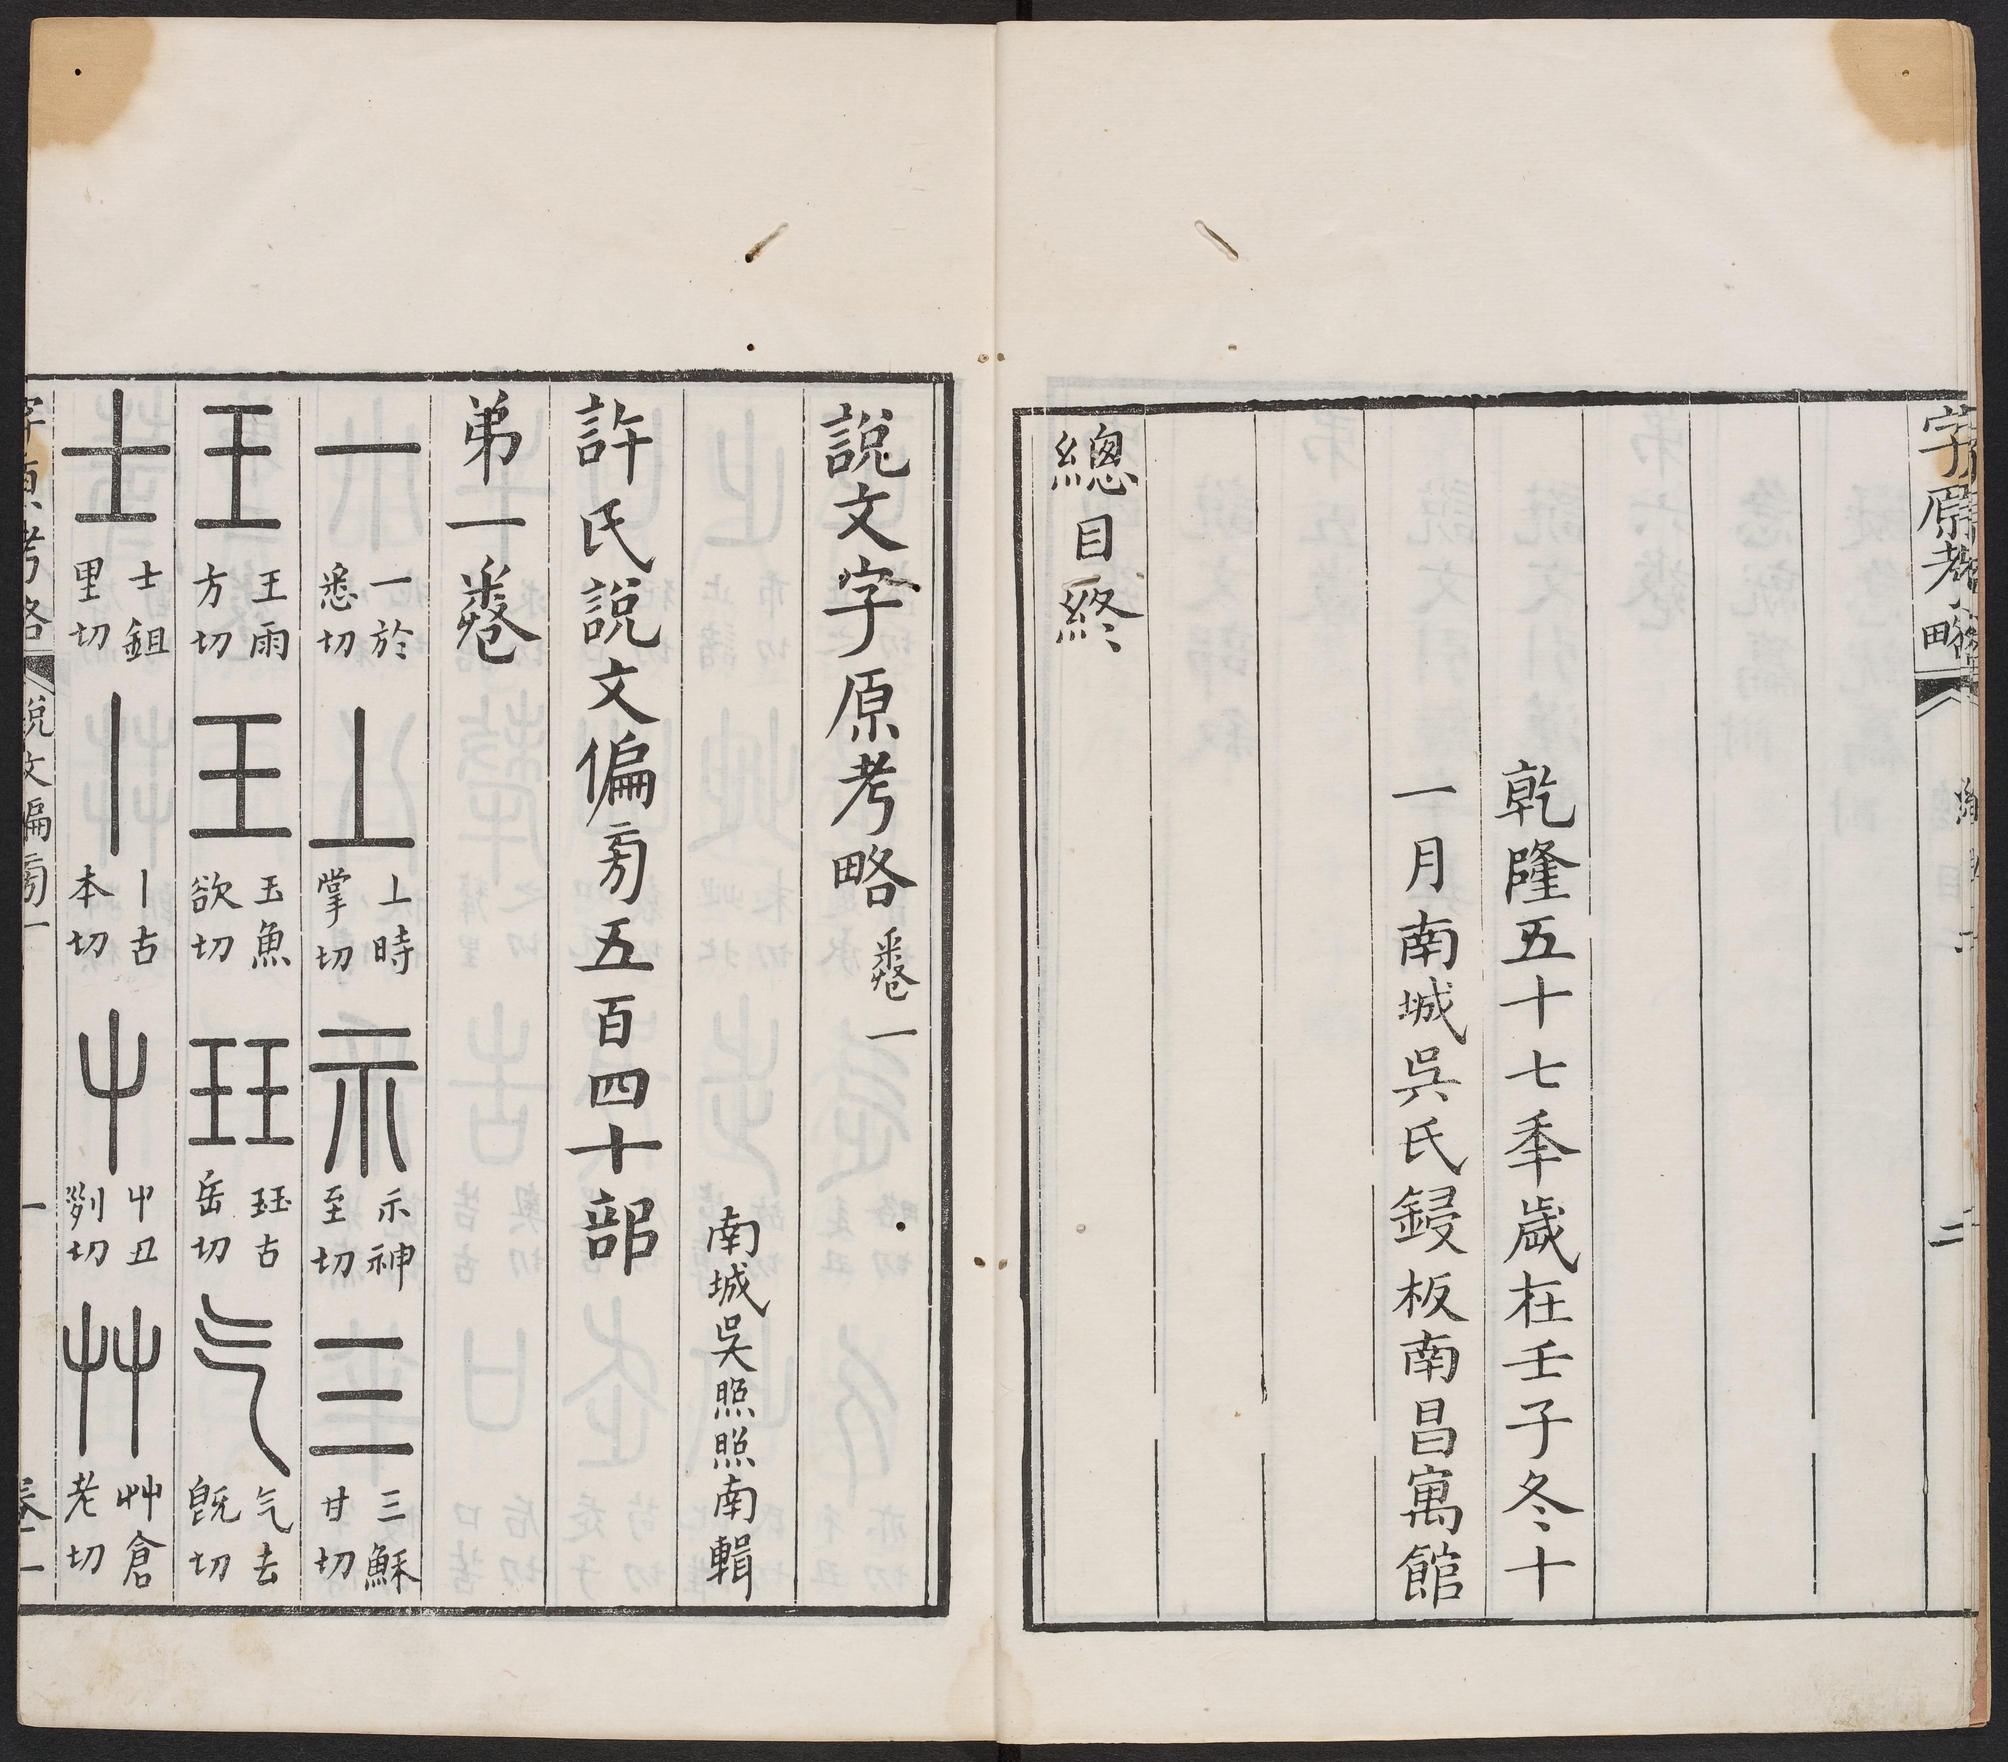 字原考略
二
乾隆五十七秊歲在壬子冬十
一月南城吳氏鋟板南昌寓館
總目終
說文字原考略卷一
南城吳照照南輯
許氏說文偏旁五百四十部
弟一卷
一 一於悉切 丄 丄時掌切 示 示神至切 三 三穌甘切
王 王雨方切 王 玉魚欲切 玨 玨古岳切 气 气去旣切
士 士鉏里切 丨 丨古本切 屮 屮丑列切 艸 艸倉老切
字原考略 說文偏旁一 一